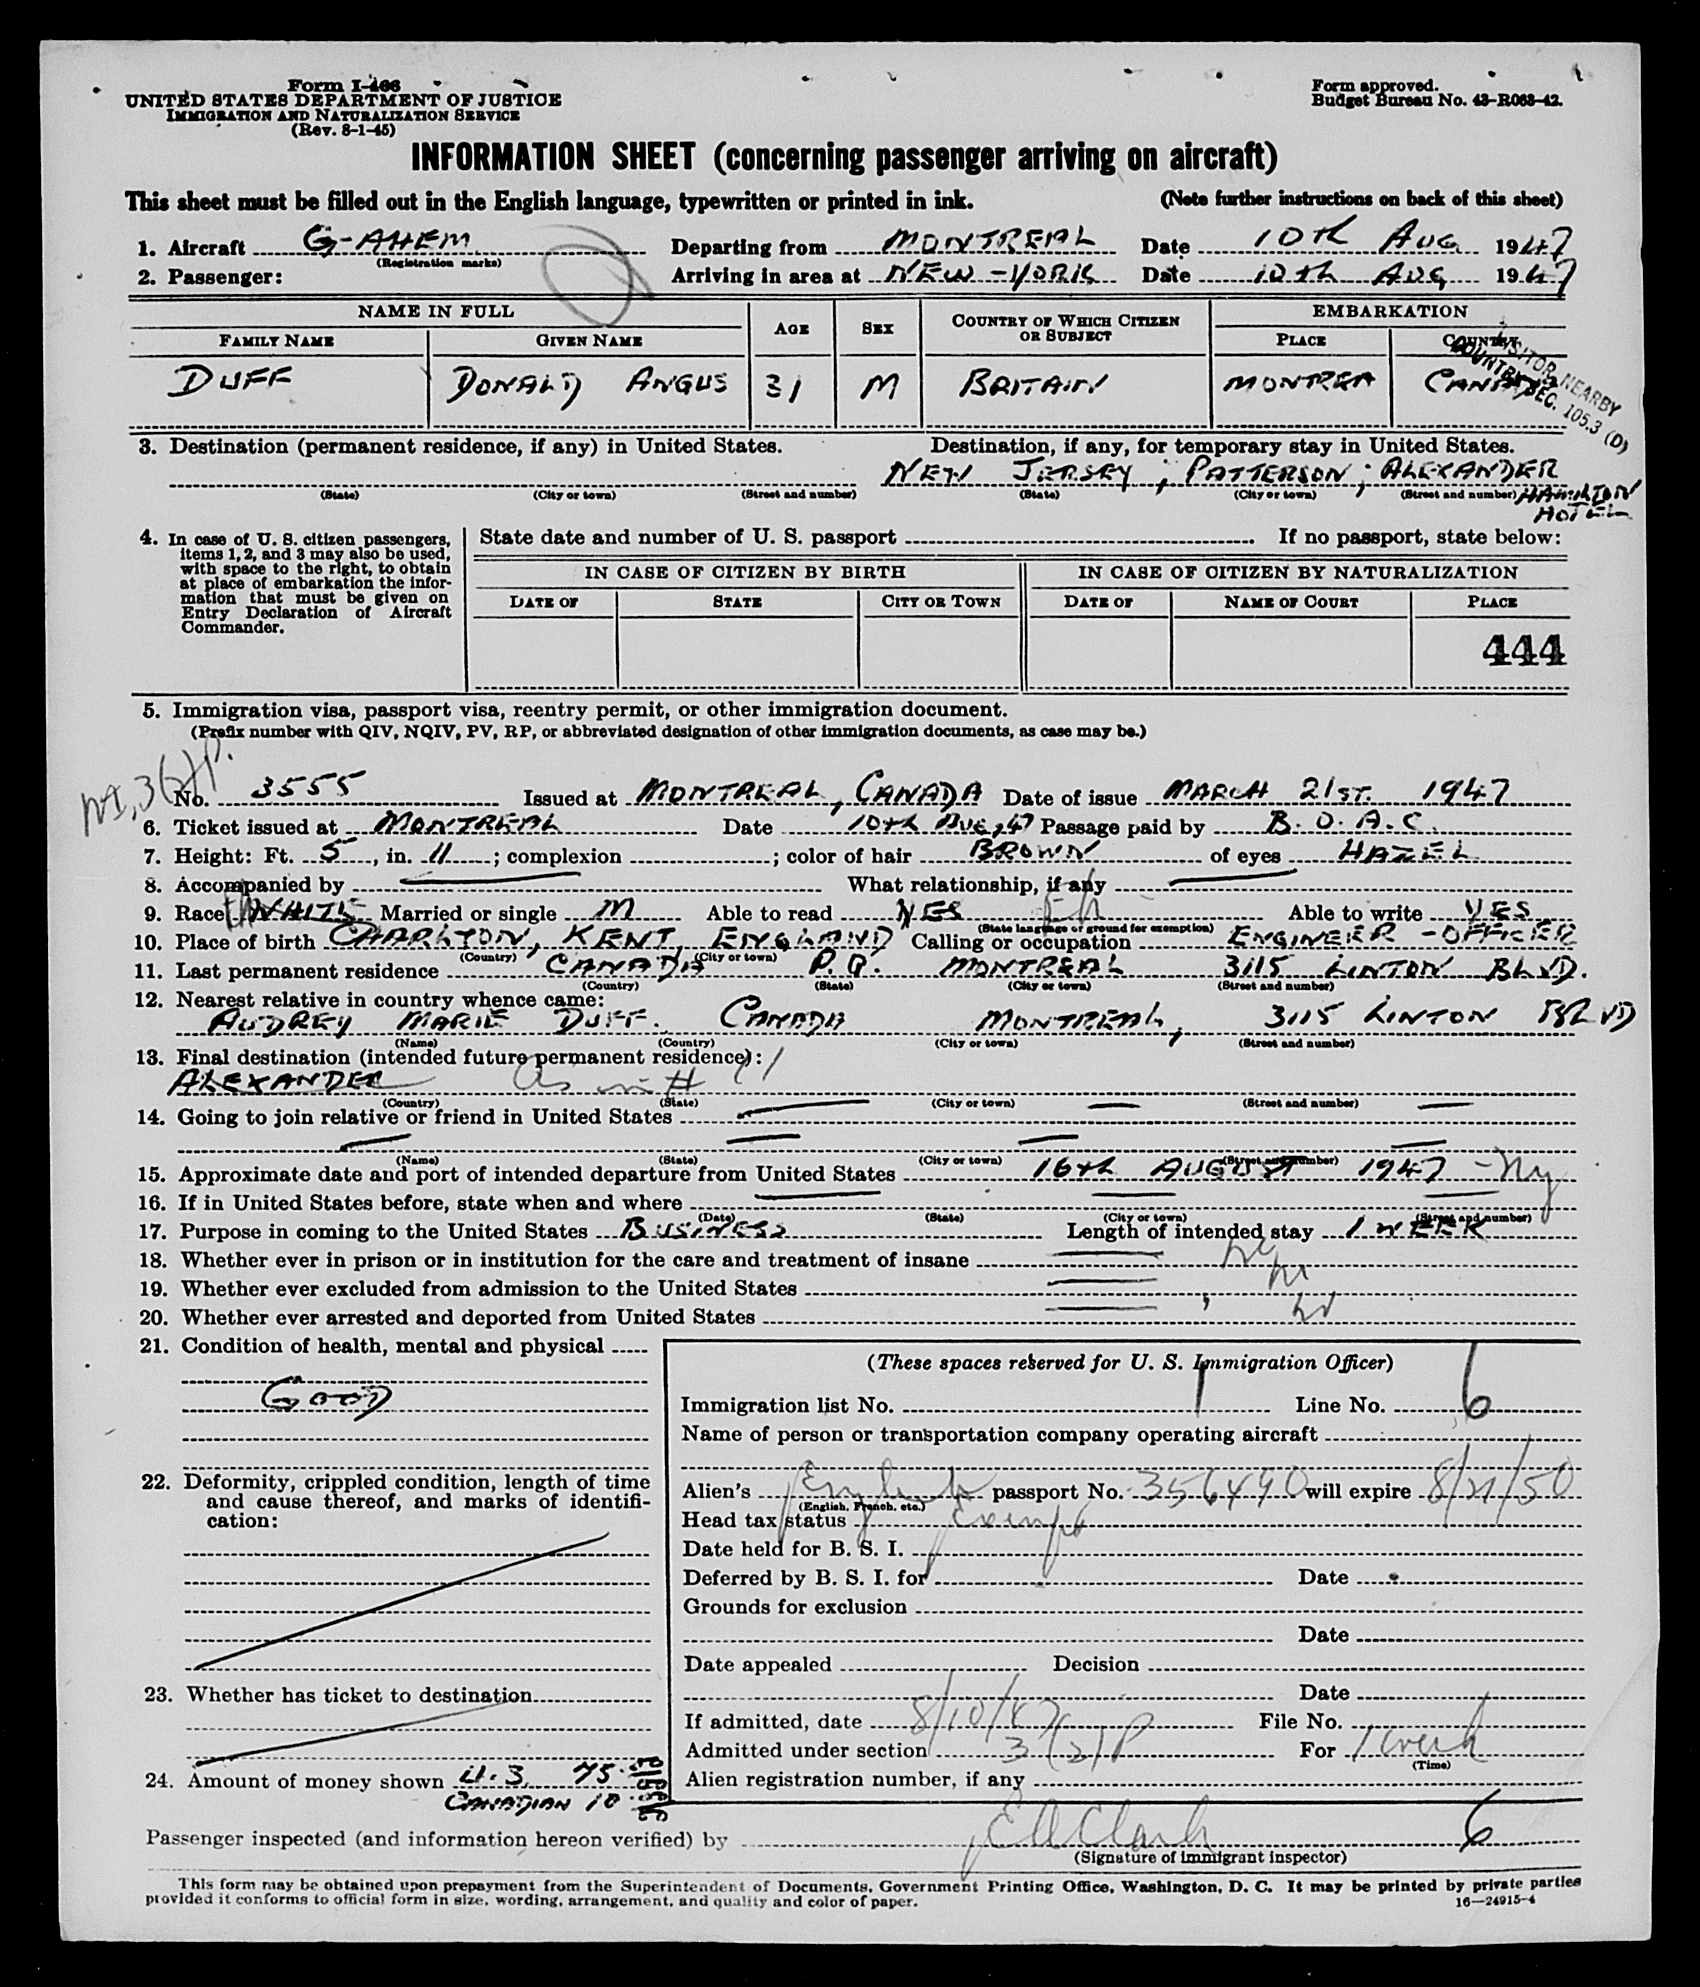 Form I-466
UNITED STATES DEPARTMENT OF JUSTICE
IMMIGRATION AND NATURALIZATION SERVICE
(Rev. 8-1-45)
Form approved.
Budget Bureau No. 43-R063-42.
INFORMATION SHEET (concerning passenger arriving on aircraft)
This sheet must be filled out in the English language, typewritten or printed in ink. (Note further instructions on back of this sheet)
1. Aircraft G-AHEM Departing from MONTREAL Date 10th AUG 1947
(Registration marks)
2. Passenger: Arriving in area at NEW-YORK Date 10th AUG, 1947
NAME IN FULL AGE SEX COUNTRY OF WHICH CITIZEN OR SUBJECT EMBARKATION
FAMILY NAME GIVEN NAME PLACE COUNTRY
DUFF DONALD ANGUS 31 M BRITAIN MONTREA CANADA
VISITOR NEARBY
COUNTRY SEC. 105.3 (D)
3. Destination (permanent residence, if any) in United States. Destination, if any, for temporary stay in United States.
NEW JERSEY; PATTERSON; ALEXANDER
(State) (City or town) (Street and number) (State) (City or town) (Street and number) HAMILTON
HOTEL
4. In case of U. S. citizen passengers, items 1, 2, and 3 may also be used, with space to the right, to obtain at place of embarkation the information that must be given on Entry Declaration of Aircraft Commander.
State date and number of U. S. passport If no passport, state below:
IN CASE OF CITIZEN BY BIRTH IN CASE OF CITIZEN BY NATURALIZATION
DATE OF STATE CITY OR TOWN DATE OF NAME OF COURT PLACE
444
5. Immigration visa, passport visa, reentry permit, or other immigration document.
(Prefix number with QIV, NQIV, PV, RP, or abbreviated designation of other immigration documents, as case may be.)
No. 3555 Issued at MONTREAL, CANADA Date of issue MARCH 21ST. 1947
6. Ticket issued at MONTREAL Date 10th AUG, 47 Passage paid by B.O.A.C.
7. Height: Ft. 5, in. 11; complexion ; color of hair BROWN of eyes HAZEL
8. Accompanied by What relationship, if any
9. Race WHITE Married or single M Able to read YES Able to write YES
(State language or ground for exemption)
10. Place of birth CHARLTON, KENT, ENGLAND Calling or occupation ENGINEER-OFFICER
(Country) (City or town)
11. Last permanent residence CANADA P.Q. MONTREAL 3115 LINTON BLVD.
(Country) (State) (City or town) (Street and number)
12. Nearest relative in country whence came:
AUDREY MARIE DUFF. CANADA MONTREAL, 3115 LINTON BLVD
(Name) (Country) (City or town) (Street and number)
13. Final destination (intended future permanent residence):
ALEXANDER as in # 11
(Country) (State) (City or town) (Street and number)
14. Going to join relative or friend in United States
(Name) (State) (City or town) (Street and number)
15. Approximate date and port of intended departure from United States 16th AUGUST 1947 - NY
16. If in United States before, state when and where
(Date) (State) (City or town) (Street and number)
17. Purpose in coming to the United States BUSINESS Length of intended stay 1 WEEK
18. Whether ever in prison or in institution for the care and treatment of insane no
19. Whether ever excluded from admission to the United States no
20. Whether ever arrested and deported from United States no
21. Condition of health, mental and physical
GOOD
22. Deformity, crippled condition, length of time and cause thereof, and marks of identification:
23. Whether has ticket to destination
24. Amount of money shown U.S. 75.
CANADIAN 10.
(These spaces reserved for U. S. Immigration Officer)
Immigration list No. 1 Line No. 6
Name of person or transportation company operating aircraft
Alien's English passport No. 356490 will expire 8/21/50
(English, French, etc.)
Head tax status Exempt
Date held for B. S. I.
Deferred by B. S. I. for Date
Grounds for exclusion
Date
Date appealed Decision
Date
If admitted, date 8/10/47 File No.
Admitted under section 3(2)P For 1 week
(Time)
Alien registration number, if any
Passenger inspected (and information hereon verified) by E A Clark 6
(Signature of immigrant inspector)
This form may be obtained upon prepayment from the Superintendent of Documents, Government Printing Office, Washington, D. C. It may be printed by private parties
provided it conforms to official form in size, wording, arrangement, and quality and color of paper.
16—24915-4